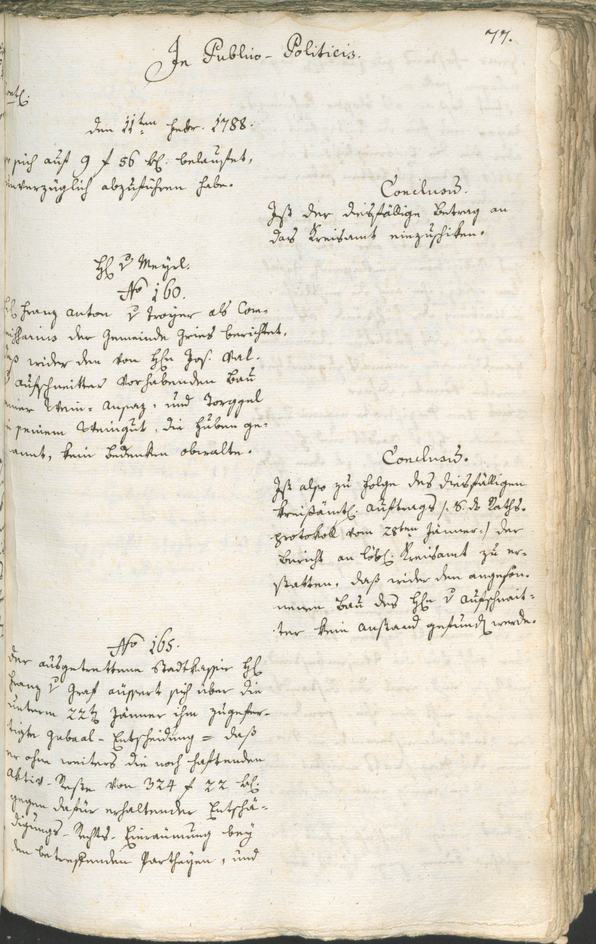 77.
In Publico-Politicis.
den 11ten Febr. 1788.
sich auf 9 f 56 kr. belaufet,
unverzüglich abzuführen habe.
Conclusum.
Ist der diesfällige Betrag an
das Kreisamt einzuschiken.
H. v Mayrl.
No 160.
Franz Anton v Troyer als Com-
missarius der Gemeinde Gries berichtet,
daß wider den von Hrn Jos. Val.
v Aufschneitter vorhabenden Bau
einer Wein-Ansaz, und Torggel
in seinem Weingut, die Huben ge-
namt, kein Bedenken obwalte.
Conclusum.
Ist also zu Folge des diesfälligen
Kreisämtl. Auftrags /: S. die Raths-
protokoll vom 28ten Jänner :/ der
Bericht an löbl. Kreisamt zu er-
statten, daß wider den angeson-
nenen Bau des Hrn v Aufschneit-
ter kein Anstand gefunden werde.
No 165.
Der ausgetrettene Stadtkassier H.
Franz v Graf äussert sich über die
unterm 22ten Jänner ihm zugefer-
tigte Gubernal-Entscheidung = daß
er ohne weiters die noch haftenden
Aktiv-Reste von 324 f 22 kr.
gegen dafür erhaltender Entschä-
digungs-Rechts-Einraumung bey
den betreffenden Partheyen, und